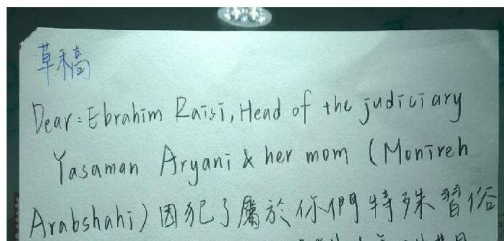 草稿
Dear: Ebrahim Raisi, Head of the judiciary
Yasaman Aryani & her mom (Monireh
Arabshahi) 因犯了屬於你們特殊習俗